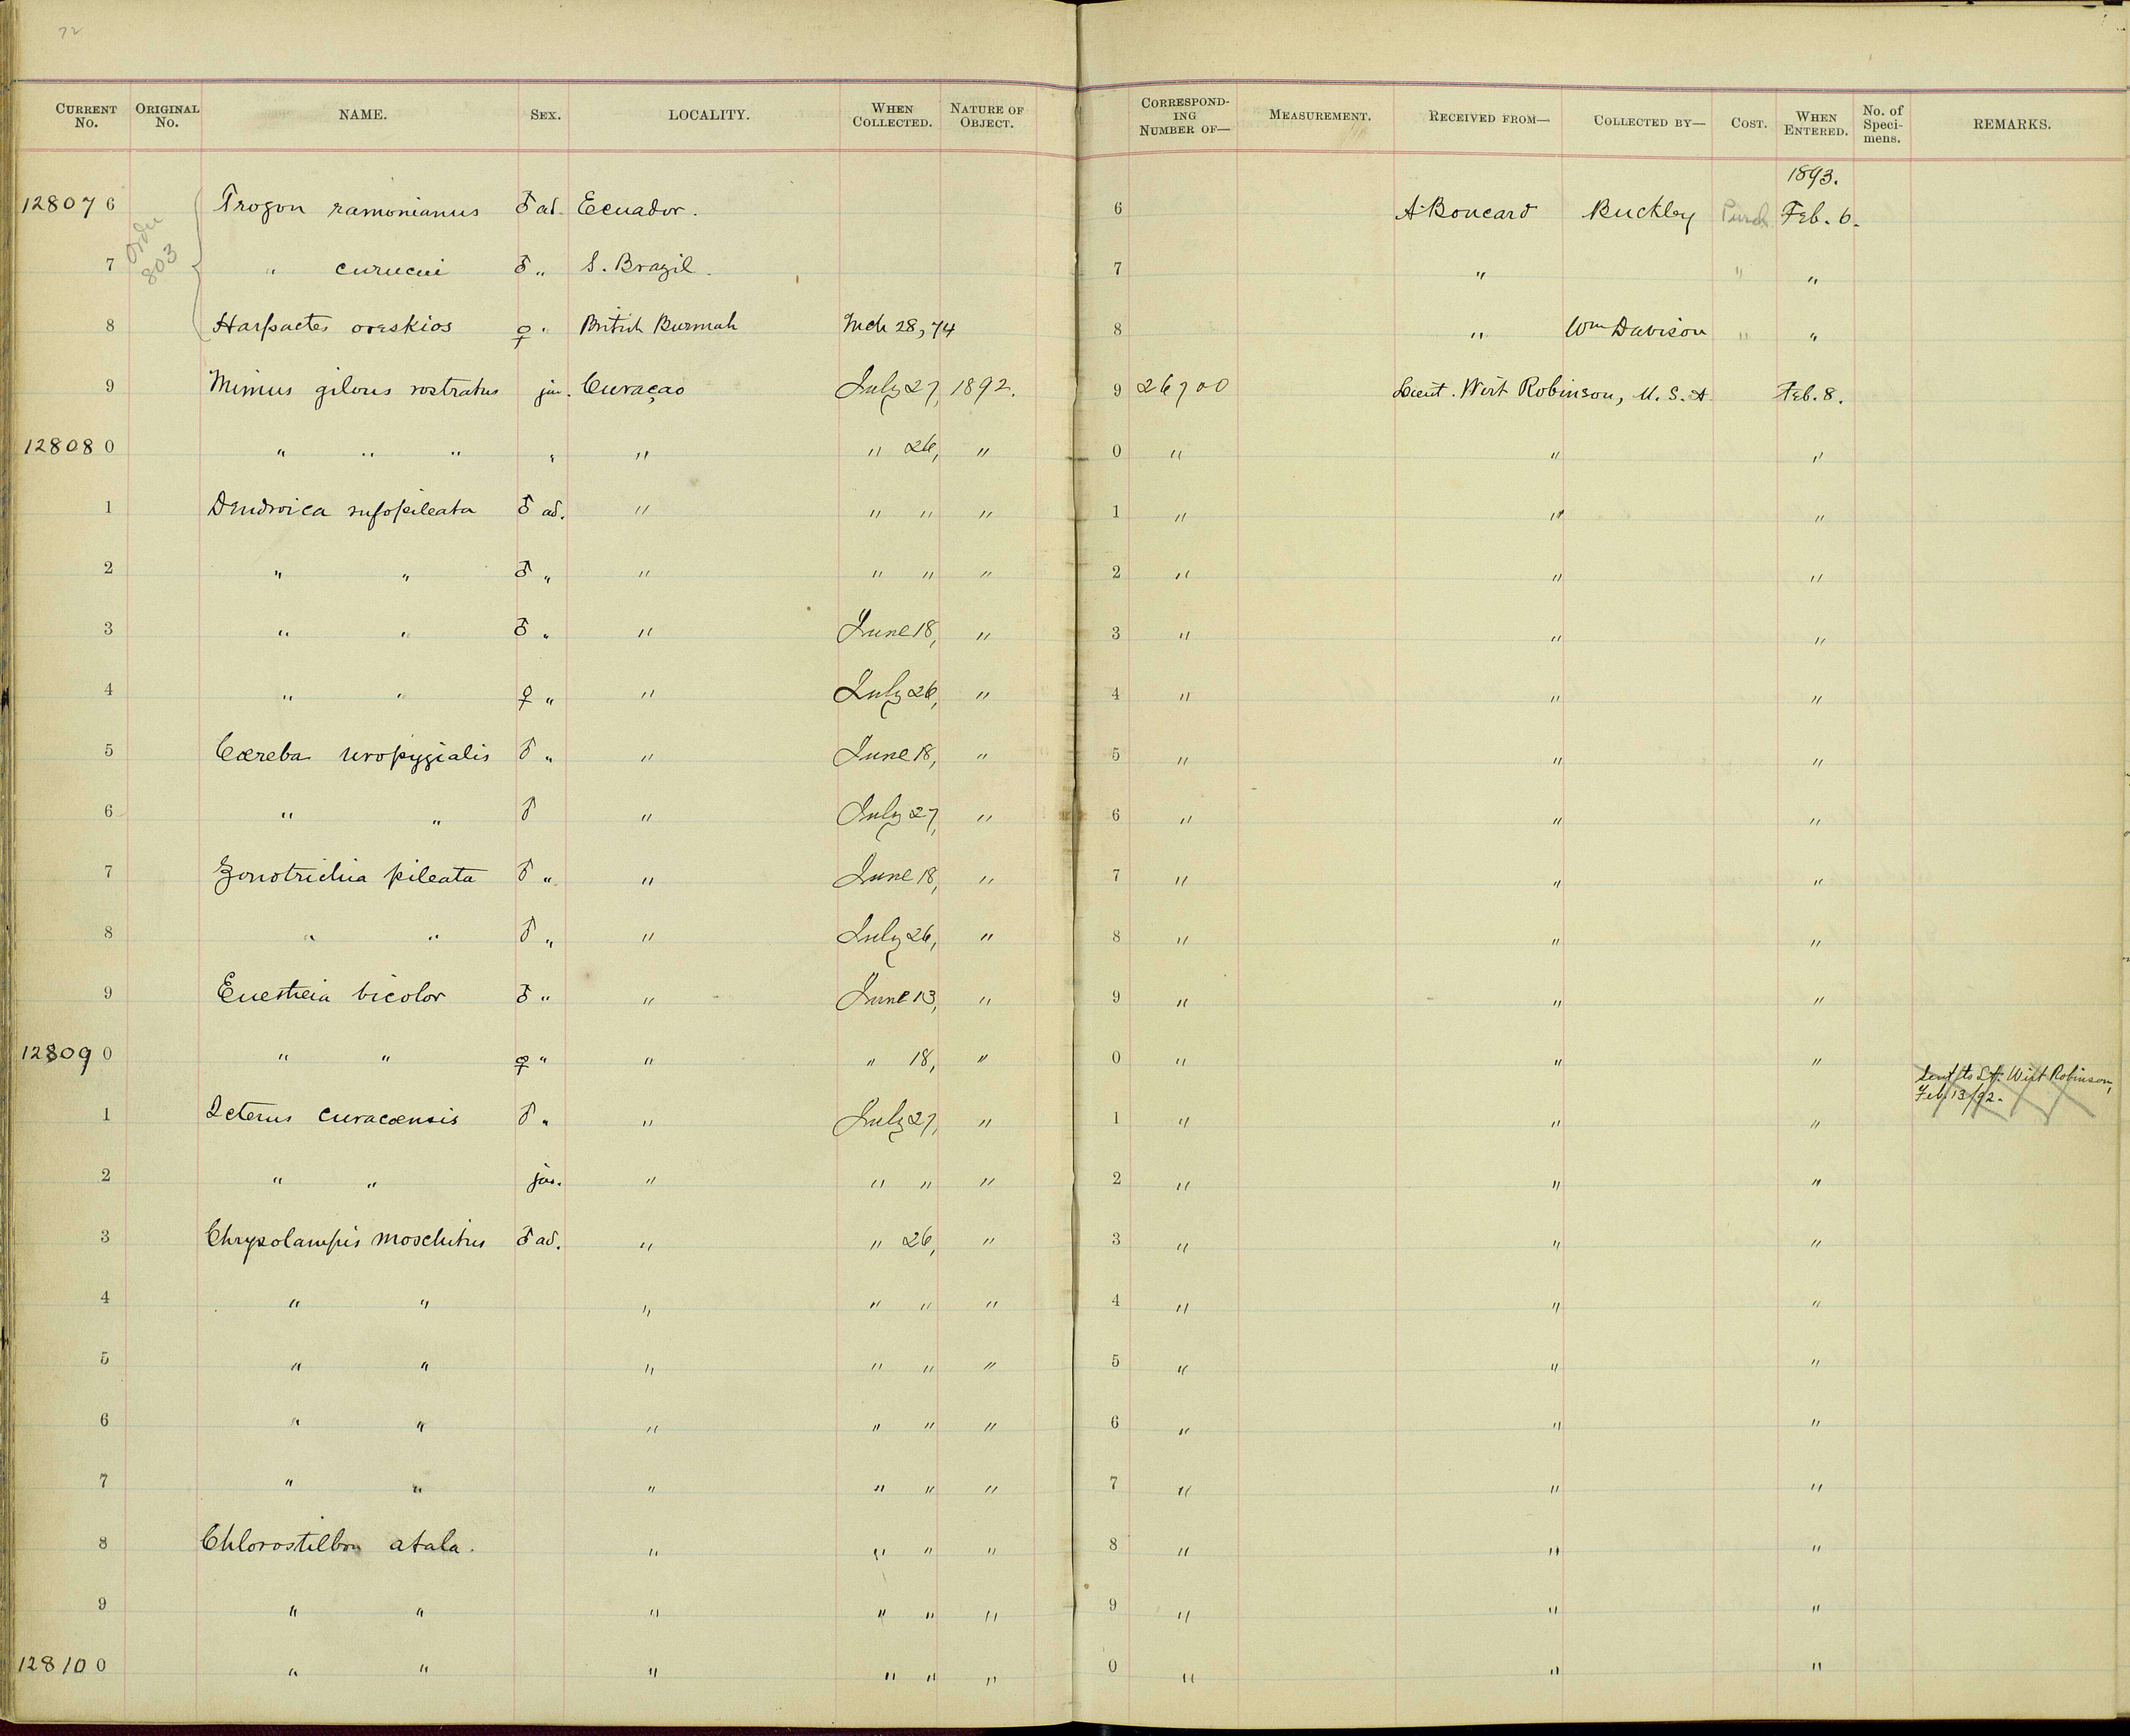 72
CURRENT No. ORIGINAL No. NAME. SEX. LOCALITY. WHEN COLLECTED. NATURE OF OBJECT. CORRESPONDING NUMBER OF— MEASUREMENT. RECEIVED FROM— COLLECTED BY— COST. WHEN ENTERED. No. of Specimens. REMARKS.
1893.
Order 803
128076 Trogon ramonianus ♂ ad. Ecuador. 6 A Boucard Buckley Purch Feb. 6.
7 " curucui ♂ " S. Brazil. 7 " " "
8 Harpactes oreskios ♀ " British Burmah Mch 28, 74 8 " Wm Davison " "
9 Mimus gilvus rostratus juv. Curaçao July 27, 1892. 9 26700 Lieut. Wirt Robinson, U.S.A. Feb. 8.
128080 " " " " " " 26, " 0 " " "
1 Dendroica rufopileata ♂ ad. " " " " 1 " " "
2 " " ♂ " " " " " 2 " " "
3 " " ♂ " " June 18, " 3 " " "
4 " " ♀ " " July 26, " 4 " " "
5 Cœreba uropygialis ♂ " " June 18, " 5 " " "
6 " " ♂ " July 27, " 6 " " "
7 Zonotrichia pileata ♂ " " June 18, " 7 " " "
8 " " ♂ " " July 26, " 8 " " "
9 Euetheia bicolor ♂ " " June 13, " 9 " " "
128090 " " ♀ " " " 18, " 0 " " "
Sent to Lt. Wirt Robinson,
Feb. 13/92.
1 Icterus curacoensis ♂ " " July 27, " 1 " " "
2 " " juv. " " " " 2 " " "
3 Chrysolampis moschitus ♂ ad. " " 26, " 3 " " "
4 " " " " " " 4 " " "
5 " " " " " " 5 " " "
6 " " " " " " 6 " " "
7 " " " " " " 7 " " "
8 Chlorostilbon atala. " " " " 8 " " "
9 " " " " " " 9 " " "
128100 " " " " " " 0 " " "